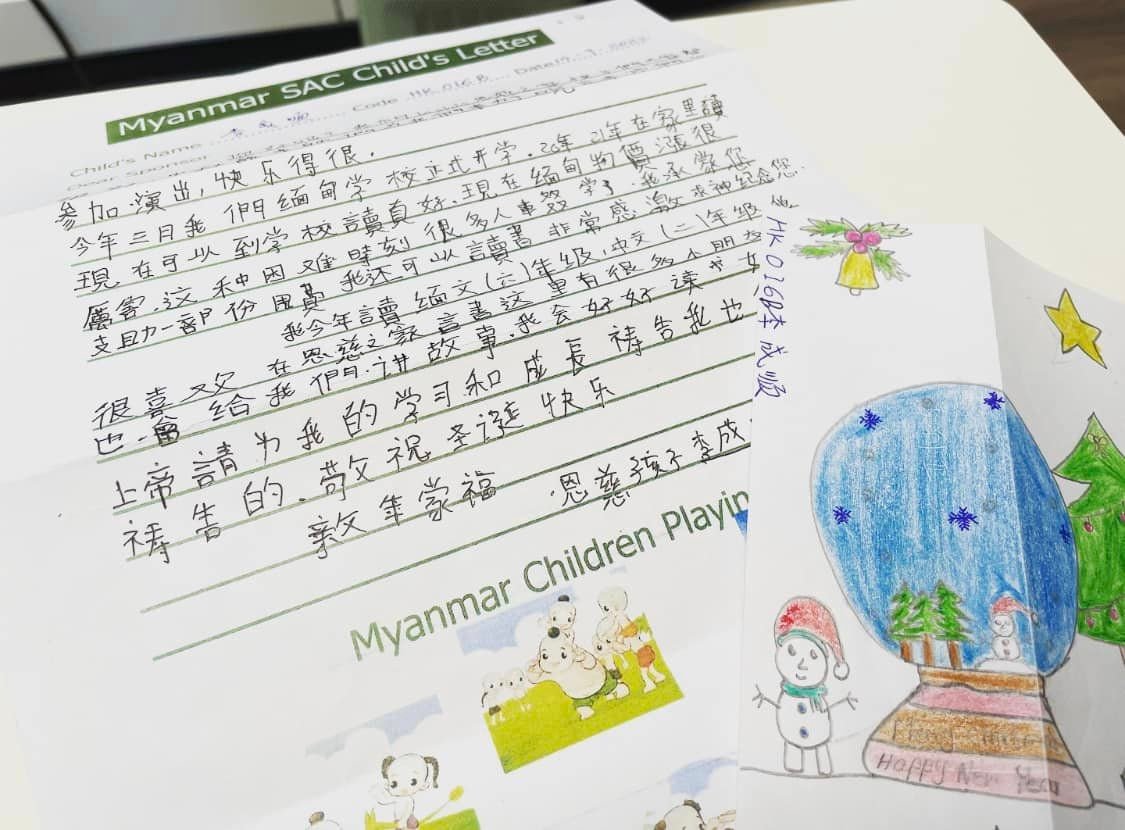 Myanmar SAC Child's Letter
Child's Name Code HK 016B Date
Dear Sponsor
参加演出,快乐得很.
今年三月我們緬甸学校正式开学.20年21年在家里讀
現在可以到学校讀真好.現在緬甸物價漲很
厲害.这种困难時刻很多人車輟学了.我承蒙您
支助一部份用費我还可以讀書非常感激求神紀念您.
我今年讀緬文(六)年级,中文(二)年级
很喜欢在恩慈之家 这里有很多小朋友
也會給我們讲故事.我会好好读书
上帝請为我的学习和成長祷告我也
祷告的.敬祝圣誕快乐
年蒙福 恩慈孩子李成
Myanmar Children Playin
HK016B李成順
Happy New Year